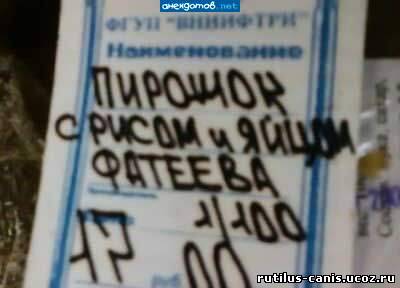 анекдотов.net
ФГУП "ВНИИФТРИ"
Наименование
ПИРОЖОК
С РИСОМ и ЯЙЦОМ
ФАТЕЕВА
1/100
17 00
руб
rutilus-canis.ucoz.ru